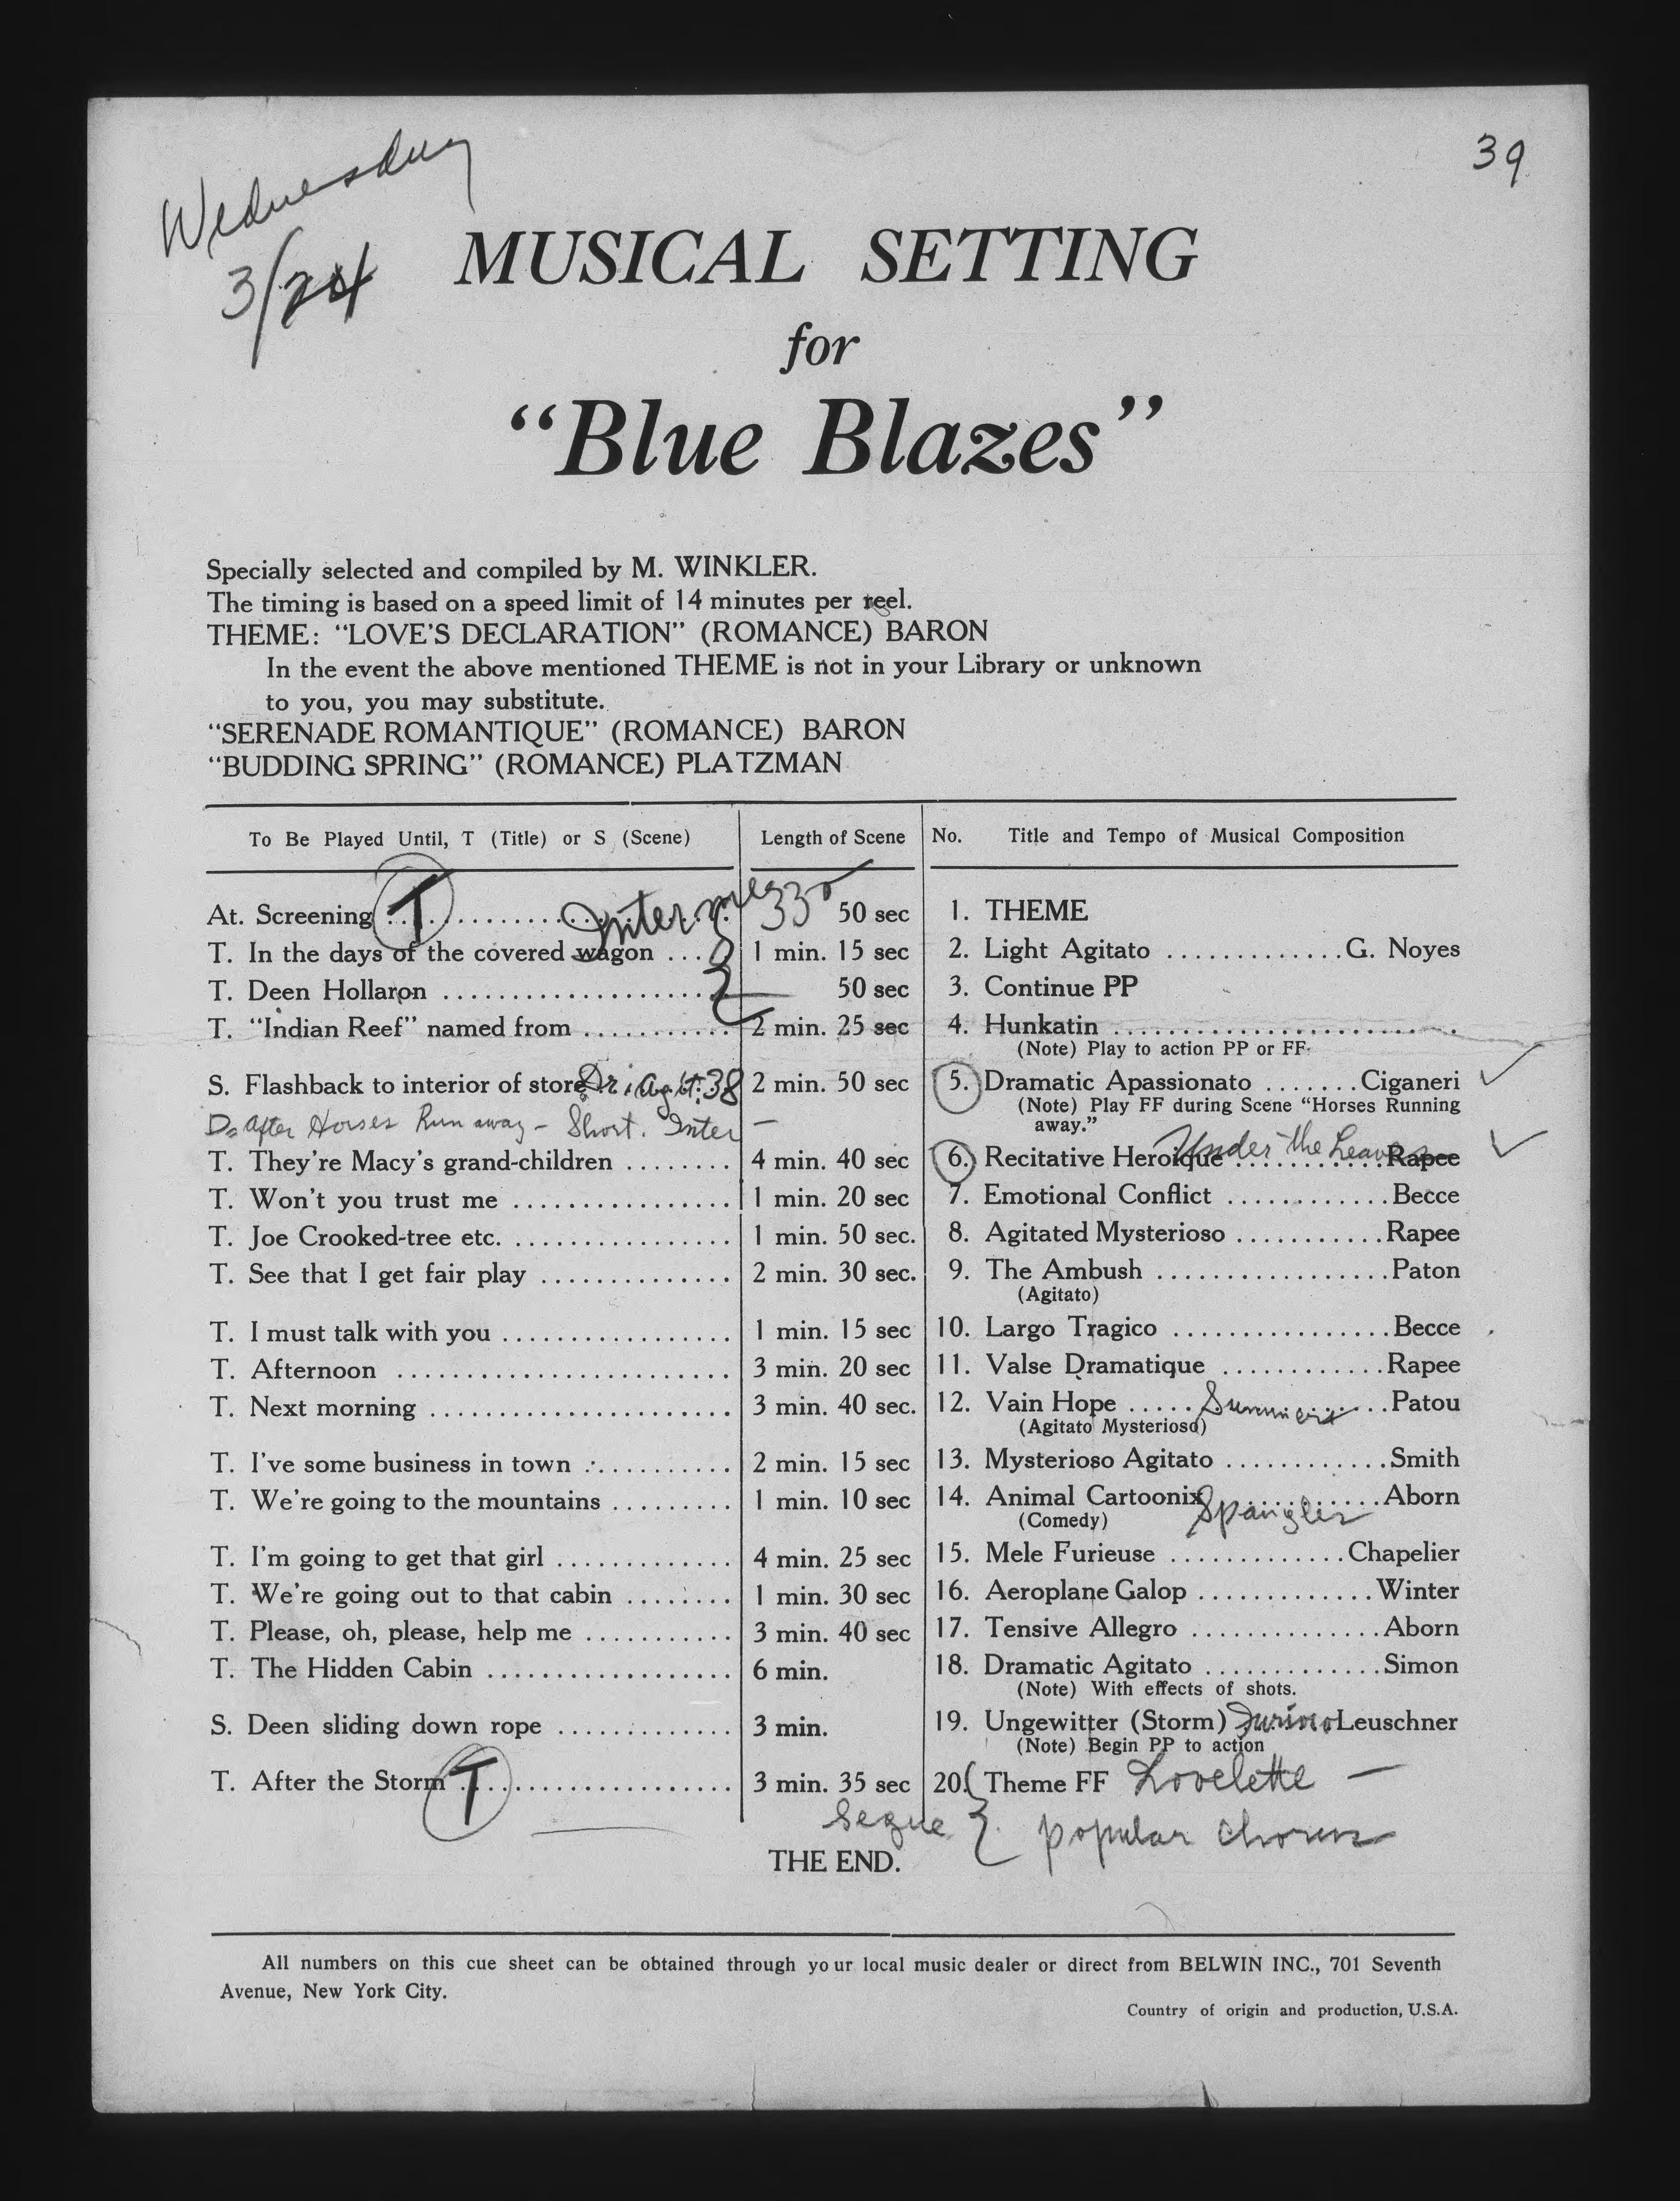 39
Wednesday
3/24
MUSICAL SETTING
for
“Blue Blazes”
Specially selected and compiled by M. WINKLER.
The timing is based on a speed limit of 14 minutes per reel.
THEME: “LOVE’S DECLARATION” (ROMANCE) BARON
In the event the above mentioned THEME is not in your Library or unknown
to you, you may substitute.
“SERENADE ROMANTIQUE” (ROMANCE) BARON
“BUDDING SPRING” (ROMANCE) PLATZMAN
To Be Played Until, T (Title) or S (Scene) Length of Scene No. Title and Tempo of Musical Composition
At. Screening T Intermezzo 330 50 sec 1. THEME
T. In the days of the covered wagon ... 1 min. 15 sec 2. Light Agitato .............G. Noyes
T. Deen Hollaron ................... 50 sec 3. Continue PP
T. “Indian Reef” named from ........... 2 min. 25 sec 4. Hunkatin .........................
(Note) Play to action PP or FF.
S. Flashback to interior of store Dr. Agit. 38 2 min. 50 sec 5. Dramatic Apassionato .......Ciganeri ✓
(Note) Play FF during Scene “Horses Running
away.”
D= After Horses Run away – Short. Inter –
Under the Leaves
T. They’re Macy’s grand-children ........ 4 min. 40 sec 6. Recitative Heroique ...........Rapee ✓
T. Won’t you trust me ................ 1 min. 20 sec 7. Emotional Conflict ............Becce
T. Joe Crooked-tree etc. ................ 1 min. 50 sec. 8. Agitated Mysterioso ...........Rapee
T. See that I get fair play .............. 2 min. 30 sec. 9. The Ambush .................Paton
(Agitato)
T. I must talk with you ................. 1 min. 15 sec 10. Largo Tragico ................Becce
T. Afternoon ........................ 3 min. 20 sec 11. Valse Dramatique ............Rapee
T. Next morning ...................... 3 min. 40 sec. 12. Vain Hope ..... ...Patou
(Agitato Mysterioso)
T. I’ve some business in town ........... 2 min. 15 sec 13. Mysterioso Agitato ............Smith
T. We’re going to the mountains ......... 1 min. 10 sec 14. Animal Cartoonix ..........Aborn
(Comedy) Spangles
T. I’m going to get that girl ............. 4 min. 25 sec 15. Mele Furieuse .............Chapelier
T. We’re going out to that cabin ........ 1 min. 30 sec 16. Aeroplane Galop .............Winter
T. Please, oh, please, help me ........... 3 min. 40 sec 17. Tensive Allegro ..............Aborn
T. The Hidden Cabin .................. 6 min. 18. Dramatic Agitato .............Simon
(Note) With effects of shots.
S. Deen sliding down rope ............. 3 min. 19. Ungewitter (Storm) Furioso Leuschner
(Note) Begin PP to action
T. After the Storm T .................. 3 min. 35 sec 20. Theme FF Lovelette –
Segue popular chorus
THE END.
All numbers on this cue sheet can be obtained through yo ur local music dealer or direct from BELWIN INC., 701 Seventh
Avenue, New York City.
Country of origin and production, U.S.A.